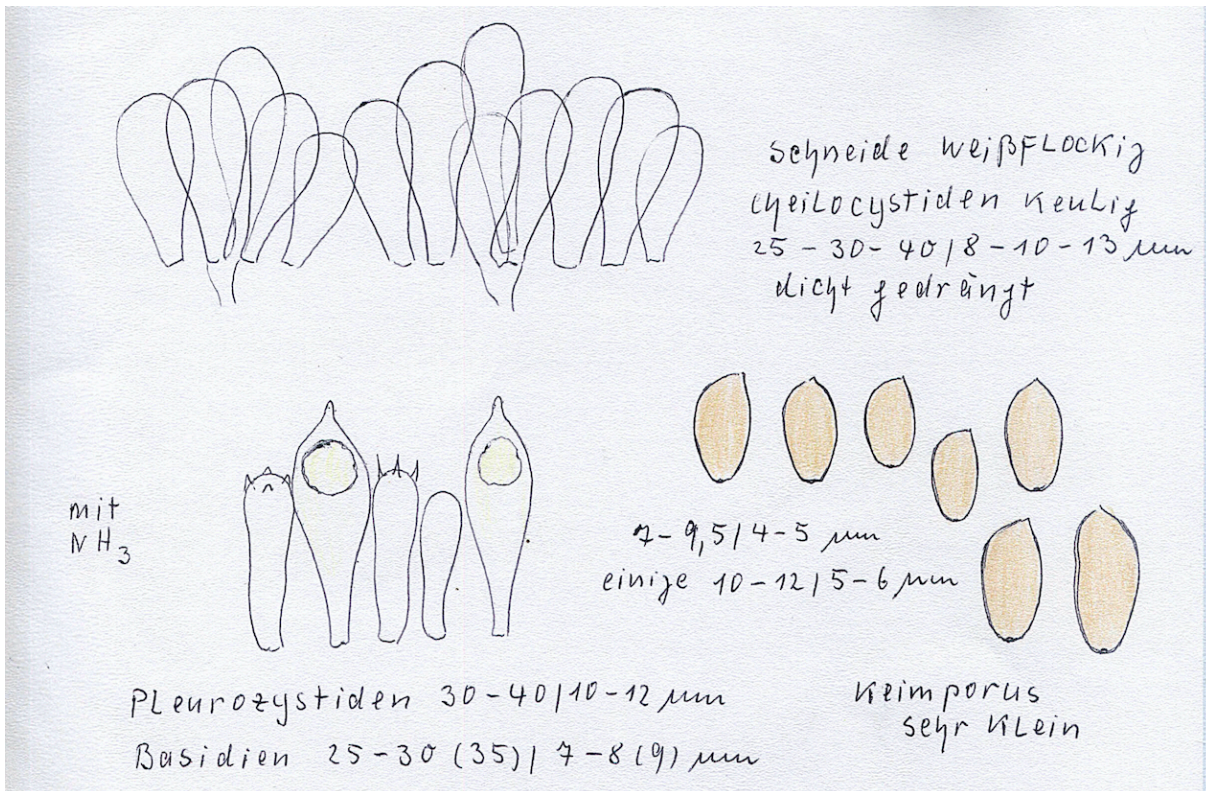 Schneide weißflockig
Cheilocystiden keulig
25 - 30 - 40 / 8 - 10 - 13 µm
dicht gedrängt
mit
NH3
7 - 9,5 / 4 - 5 µm
einige 10 - 12 / 5 - 6 µm
Pleurozystiden 30 - 40 / 10 - 12 µm
Basidien 25 - 30 (35) / 7 - 8 (9) µm
Keimporus
sehr klein